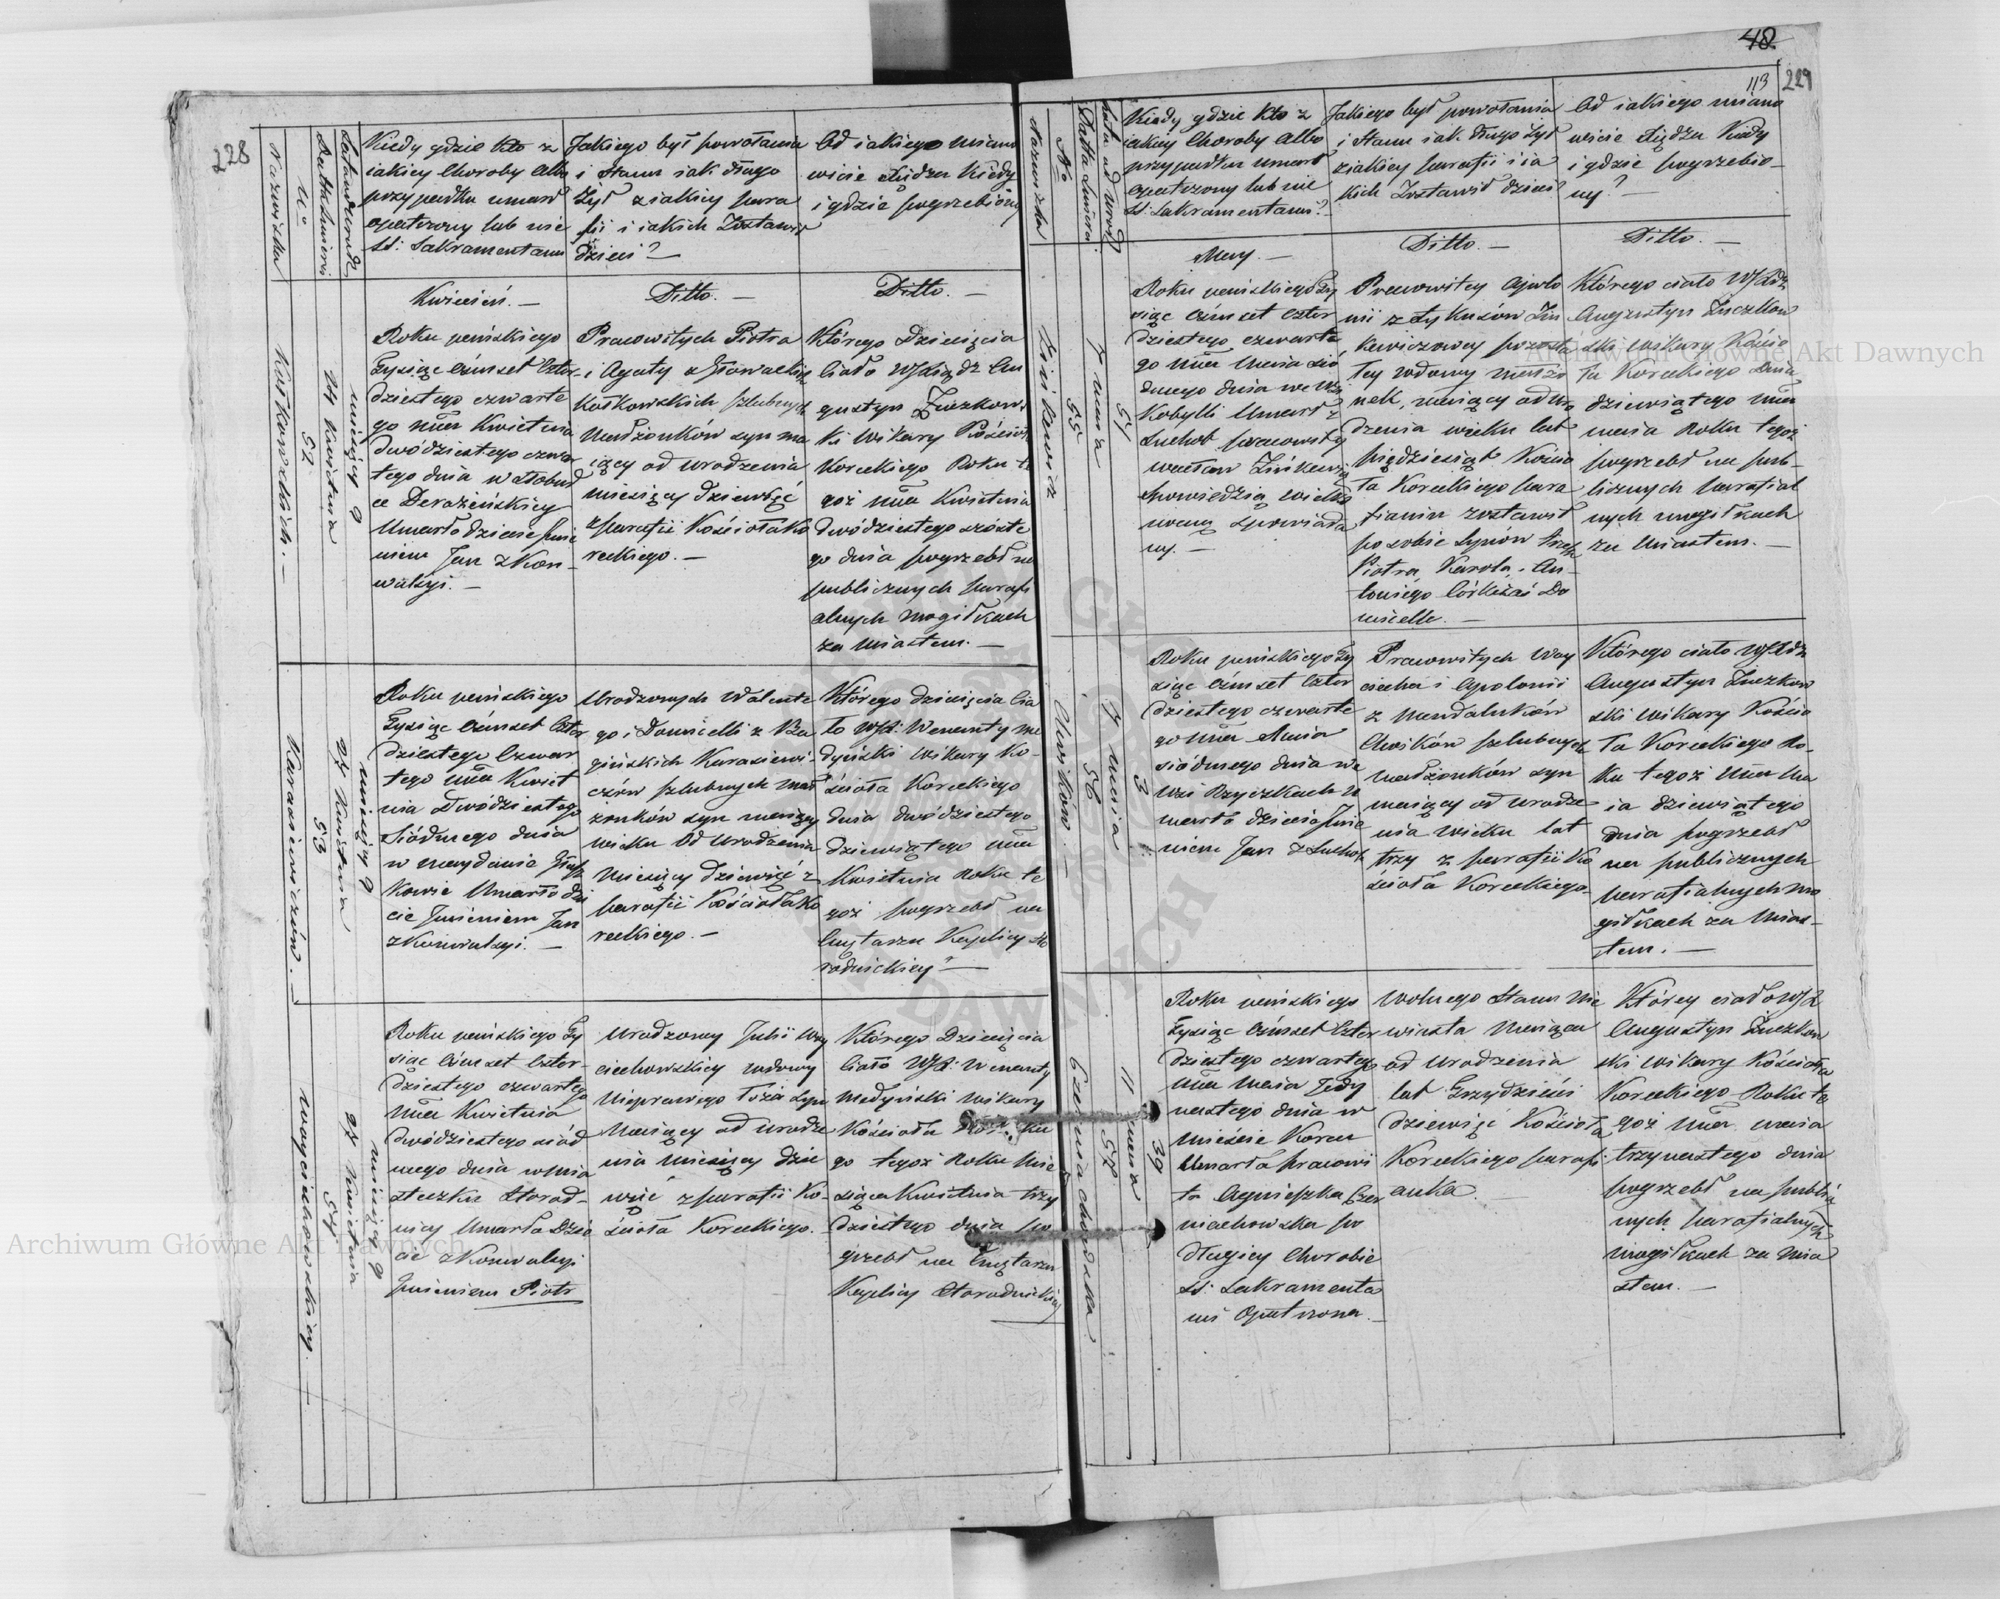 228
Nazwiska
No
Datta śmierci
Kiedy gdzie kto z
iakiey Choroby Albo
przypadku umarł
opatrzony lub nie
SS: Sakramentami
Jakiego był powołania
i stanu iak długo
żył z iakiey para
fii i iakich Zostawił
dzieci?
Od iakiego miano
wicie Xiędza Kiedy
i gdzie pogrzebiony
Kwiecień. —
Ditto. —
Ditto. —
Kotkowskich. —
52
24 Kwietnia
miesięcy 9
Roku pańskiego
Tysiąc ośmset Czter-
dziestego czwarte
go mca Kwietnia
dwódziestego czwar
tego dnia w słobod
ce Derażeńskiey
Umarło dziecie Jmie
niem Jan z Kon-
wulsyi. —
Pracowitych Piotra
i Agaty z Głowackich
Kotkowskich szlubnych
Małżonków syn ma
iący od urodzenia
miesięcy dziewięć
z parafii Kościoła Ko
reckiego. —
Którego Dziecięcia
Ciało W Xiądz Au
gustyn Zuczkows
ki Wikary Kościoła
Koreckiego Roku te
goż mca Kwietnia
dwódziestego szóste
go dnia pogrzebł na
publicznych parafi
alnych mogiłkach
za miastem. —
Karasiewiczów. —
53
27 Kwietnia
miesięcy 9
Roku pańskiego
Tysiąc ośmset Czter
dziestego Czwar
tego mca Kwiet
nia Dwódziestego
Siódmego dnia
w maydanie
kowie Umarło dzie
cie Jmieniem Jan
z Konwulsyi. —
Urodzonych Walente
go i Domicelli z
gińskich Karasiewi-
czów szlubnych mał
żonków syn maiący
wieku Od urodzenia
Miesięcy dziewięć z
parafii Kościoła Ko
reckiego. —
Którego dziecięcia Cia
ło WX: Wenanty me
dyński Wikary Ko-
ścioła Koreckiego
dnia dwódziestego
dziewiątego mca
Kwietnia Roku te
goż pogrzebł na
Cmętarzu Kaplicy Ho
rodnickiey —
Woyciechowskiey. —
54
27 Kwietnia
miesięcy 9
Roku pańskiego Ty
siąc ośmset Czter-
dziestego czwartego
mca Kwietnia
dwódziestego siód
mego dnia w mia
steczku Horod-
nicy Umarło Dzie
cie z Konwulsyi
Jmieniem Piotr
Urodzoney Julii Woy
ciechowskiey wdowy
nieprawego łoża syn
Maiący od urodze
nia Miesięcy dzie
więć z parafii Ko-
ścioła Koreckiego.
Którego Dziecięcia
Ciało WX: Wenanty
Medyński Wikary
Kościoła
go tegoż Roku Mie
siąca Kwietnia trzy
dziestego dnia po
grzebł na Cmętarzu
Kaplicy Horodnickiey
48
113
229
Nazwiska
No
Datta śmierci
Lata od Urodz
Kiedy gdzie kto z
iakiey Choroby Albo
przypadku umarł
opatrzony lub nie
SS: Sakramentami?
Jakiego był powołania
i stanu iak długo żył
z iakiey parafii i ia
kich Zostawił dzieci?
Od iakiego miano
wicie Xiędza Kiedy
i gdzie pogrzebio-
ny? —
May. —
Ditto. —
Ditto. —
55
7 maia
51
Roku pańskiego Ty
siąc ośmset Czter
dziestego czwarte
go mca Maia Sió
dmego dnia we wsi
Kobylli Umarł z
Suchot pracowity
Wacław Zińkiewicz
Spowiedzią wielka
nocną Spowiada
ny. —
Pracowitey Apolo
nii z Łykusów Zin
kiewiczowey pozosta
łey wdowy małżo
nek, maiący od uro
dzenia wieku lat
pięćdziesiąt Kościo
ła Koreckiego para
fianin zostawił
po sobie Synów trzech
Piotra, Karola, An-
toniego Córkę zaś Do
micelle. —
Którego ciało W Xdz
Augustyn Zuczkow
ski Wikary Koście
ła Koreckiego Dnia
dziewiątego mca
maia Roku tegoż
pogrzebł na pub-
licznych parafial
nych mogiłkach
za Miastem. —
Cwików. —
56
7 maia
3
Roku pańskiego Ty
siąc ośmset Czter
dziestego czwarte
go mca Maia
siódmego dnia we
wsi Rzyczkach u
marło dziecie Jmie
niem Jan z Suchot
Pracowitych Woy
ciecha i Apolonii
z Mendaluków
Cwików szlubnych
małżonków syn
maiący od urodze
nia wieku lat
trzy z parafii Ko
ścioła Koreckiego
Którego ciało W Xdz
Augustyn Zuczkow
ski Wikary Kościo
ła Koreckiego Ro-
ku tegoż mca Ma
ia dziewiątego
dnia pogrzebł
na publicznych
parafialnych mo
giłkach za Mias-
tem. —
Czerniachowska
57
11 maia
39
Roku pańskiego
Tysiąc ośmset Czter
dziestego czwartego
mca Maia Jedy
nastego dnia w
mieście Korcu
Umarła pracowi
ta Agnieszka Czer
niachowska po
długiey Chorobie
SS: Sakramenta
mi Opatrzona. —
Wolnego stanu Nie
wiasta Maiąca
od urodzenia
lat Trzydzieści
dziewięć Kościoła
Koreckiego parafi
anka. —
Którey ciało WX
Augustyn Zuczkow
ski Wikary Kościoła
Koreckiego Roku te
goż mca maia
trzynastego dnia
pogrzebł na publi
cznych parafialnych
mogiłkach za Mia
stem. —
Archiwum Główne Akt Dawnych
Archiwum Główne Akt Dawnych